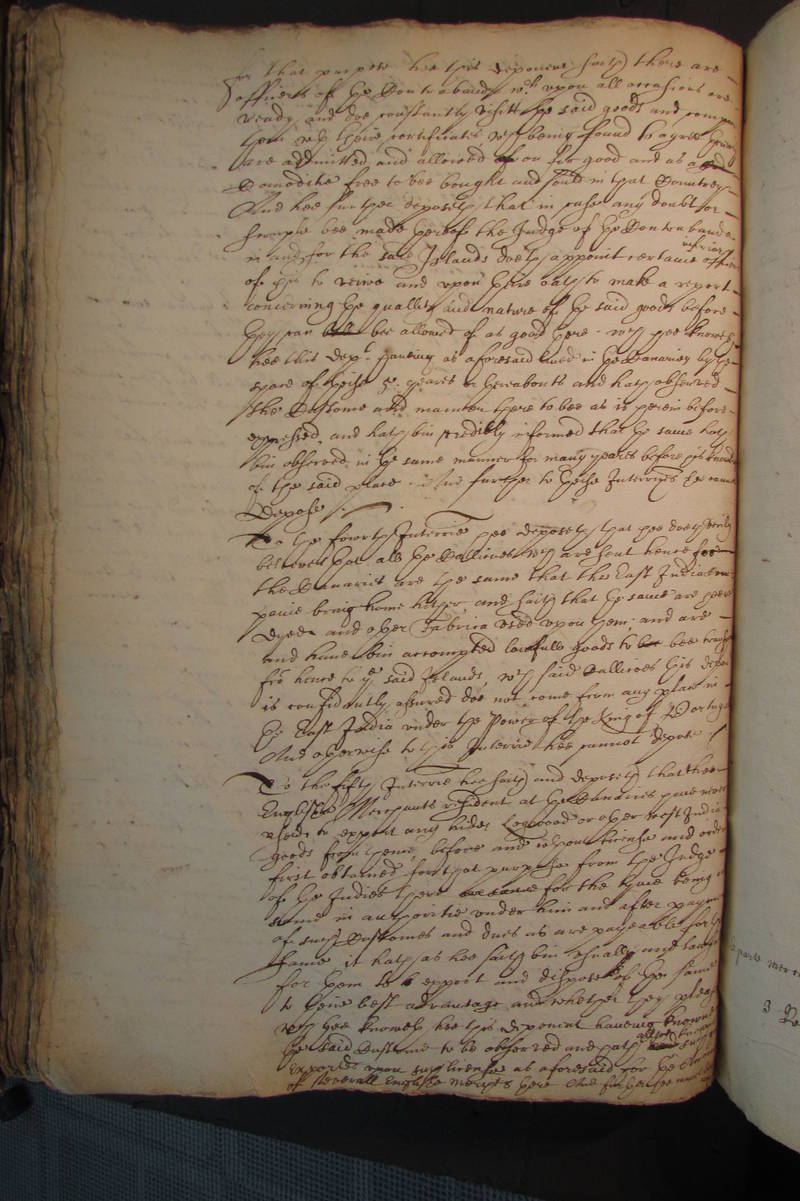 for that purpose hee this deponent saith there are
officers of the Contrabanda wch upon all occasions are
ready and doe constantly visitt the said goods and compare
them with their certificates wch being found to agree they
are admitted and allowed of or for good and as a good
Comoditie free to bee bought and sould in that Countrey
And hee further deposeth that in case any doubt or
scruple bee made thereof the Judge of the Contrabanda
inferiour
in and for the said Islands doeth appoint certaine officers
of his to veiwe and upon their oaths to make a report
concerning the quallity and nature of the said goods before
they can bee allowed of as good there wch hee knoweth
hee this Dept haveing as aforesaid lived in the Canaries by the
space of theise yeares or thereabouts and hath observed
the Custome and manner there to bee as is herein before
expressed, and hath bin credibly informed that the same hath
bin observed in the same manner for many yeares before his
of the said place And further to theise Interries he cannot
Depose /.
To the fourth Interrie hee deposeth that hee doeth verily
beleeve that all the Callicoes wch are sent hence for
the Canaries are the same that the East India Com
panie bring home hether, and saith that the same are here
Dyed and other Fabrica used upon them and are
and have bin accompted lawfull goods to bee
fro hence to ye said Islands, wch said Callicoes this
is confidently assured doe not come from any place in
the East India under the Power of the King of Portugall
And otherwise to this Interrie hee cannot depose /
To the fifth Interrie hee saith and deposeth that the
English Merchants resident at the Canaries
to export any hides Logwood or other West India
goods from thence, before and upon license and order
first obtained for that purpose from the Judge
of the Indies there for the tyme being or
some in authoritie under him and after payment
of such Customes and dues as are payeable for the
same it hath as hee saith bin usually and lawfull
for them to export and dispose of the same
to their best advantage and whether they please
wch hee knoweth hee this deponent haveing knowne
the said Custome to be observed and hath
exported upon such license as aforesaid for the
of severall English Merchts there And further hee